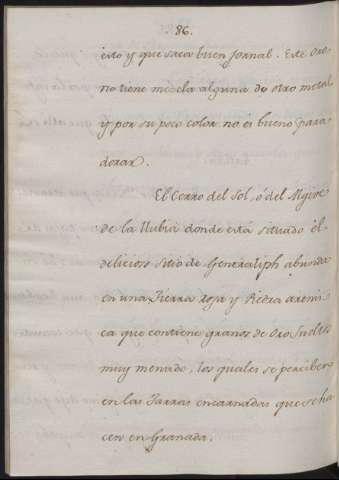 86.
esto y que saca buen Jornal. Este Oro
no tiene mezcla alguna de otro metal
y por su poco color no es bueno para
dorar.
El Cerro del Sol, ó del Algive
de la Llubia donde está situado él
delicioso sitio de Generaliph abunda
en una Tierra roja y Piedra areniz
ca que contiene granos de Oro Sueltos
muy menudo, los quales se perciben
en las Jarras encarnadas que se ha
cen en Granada.